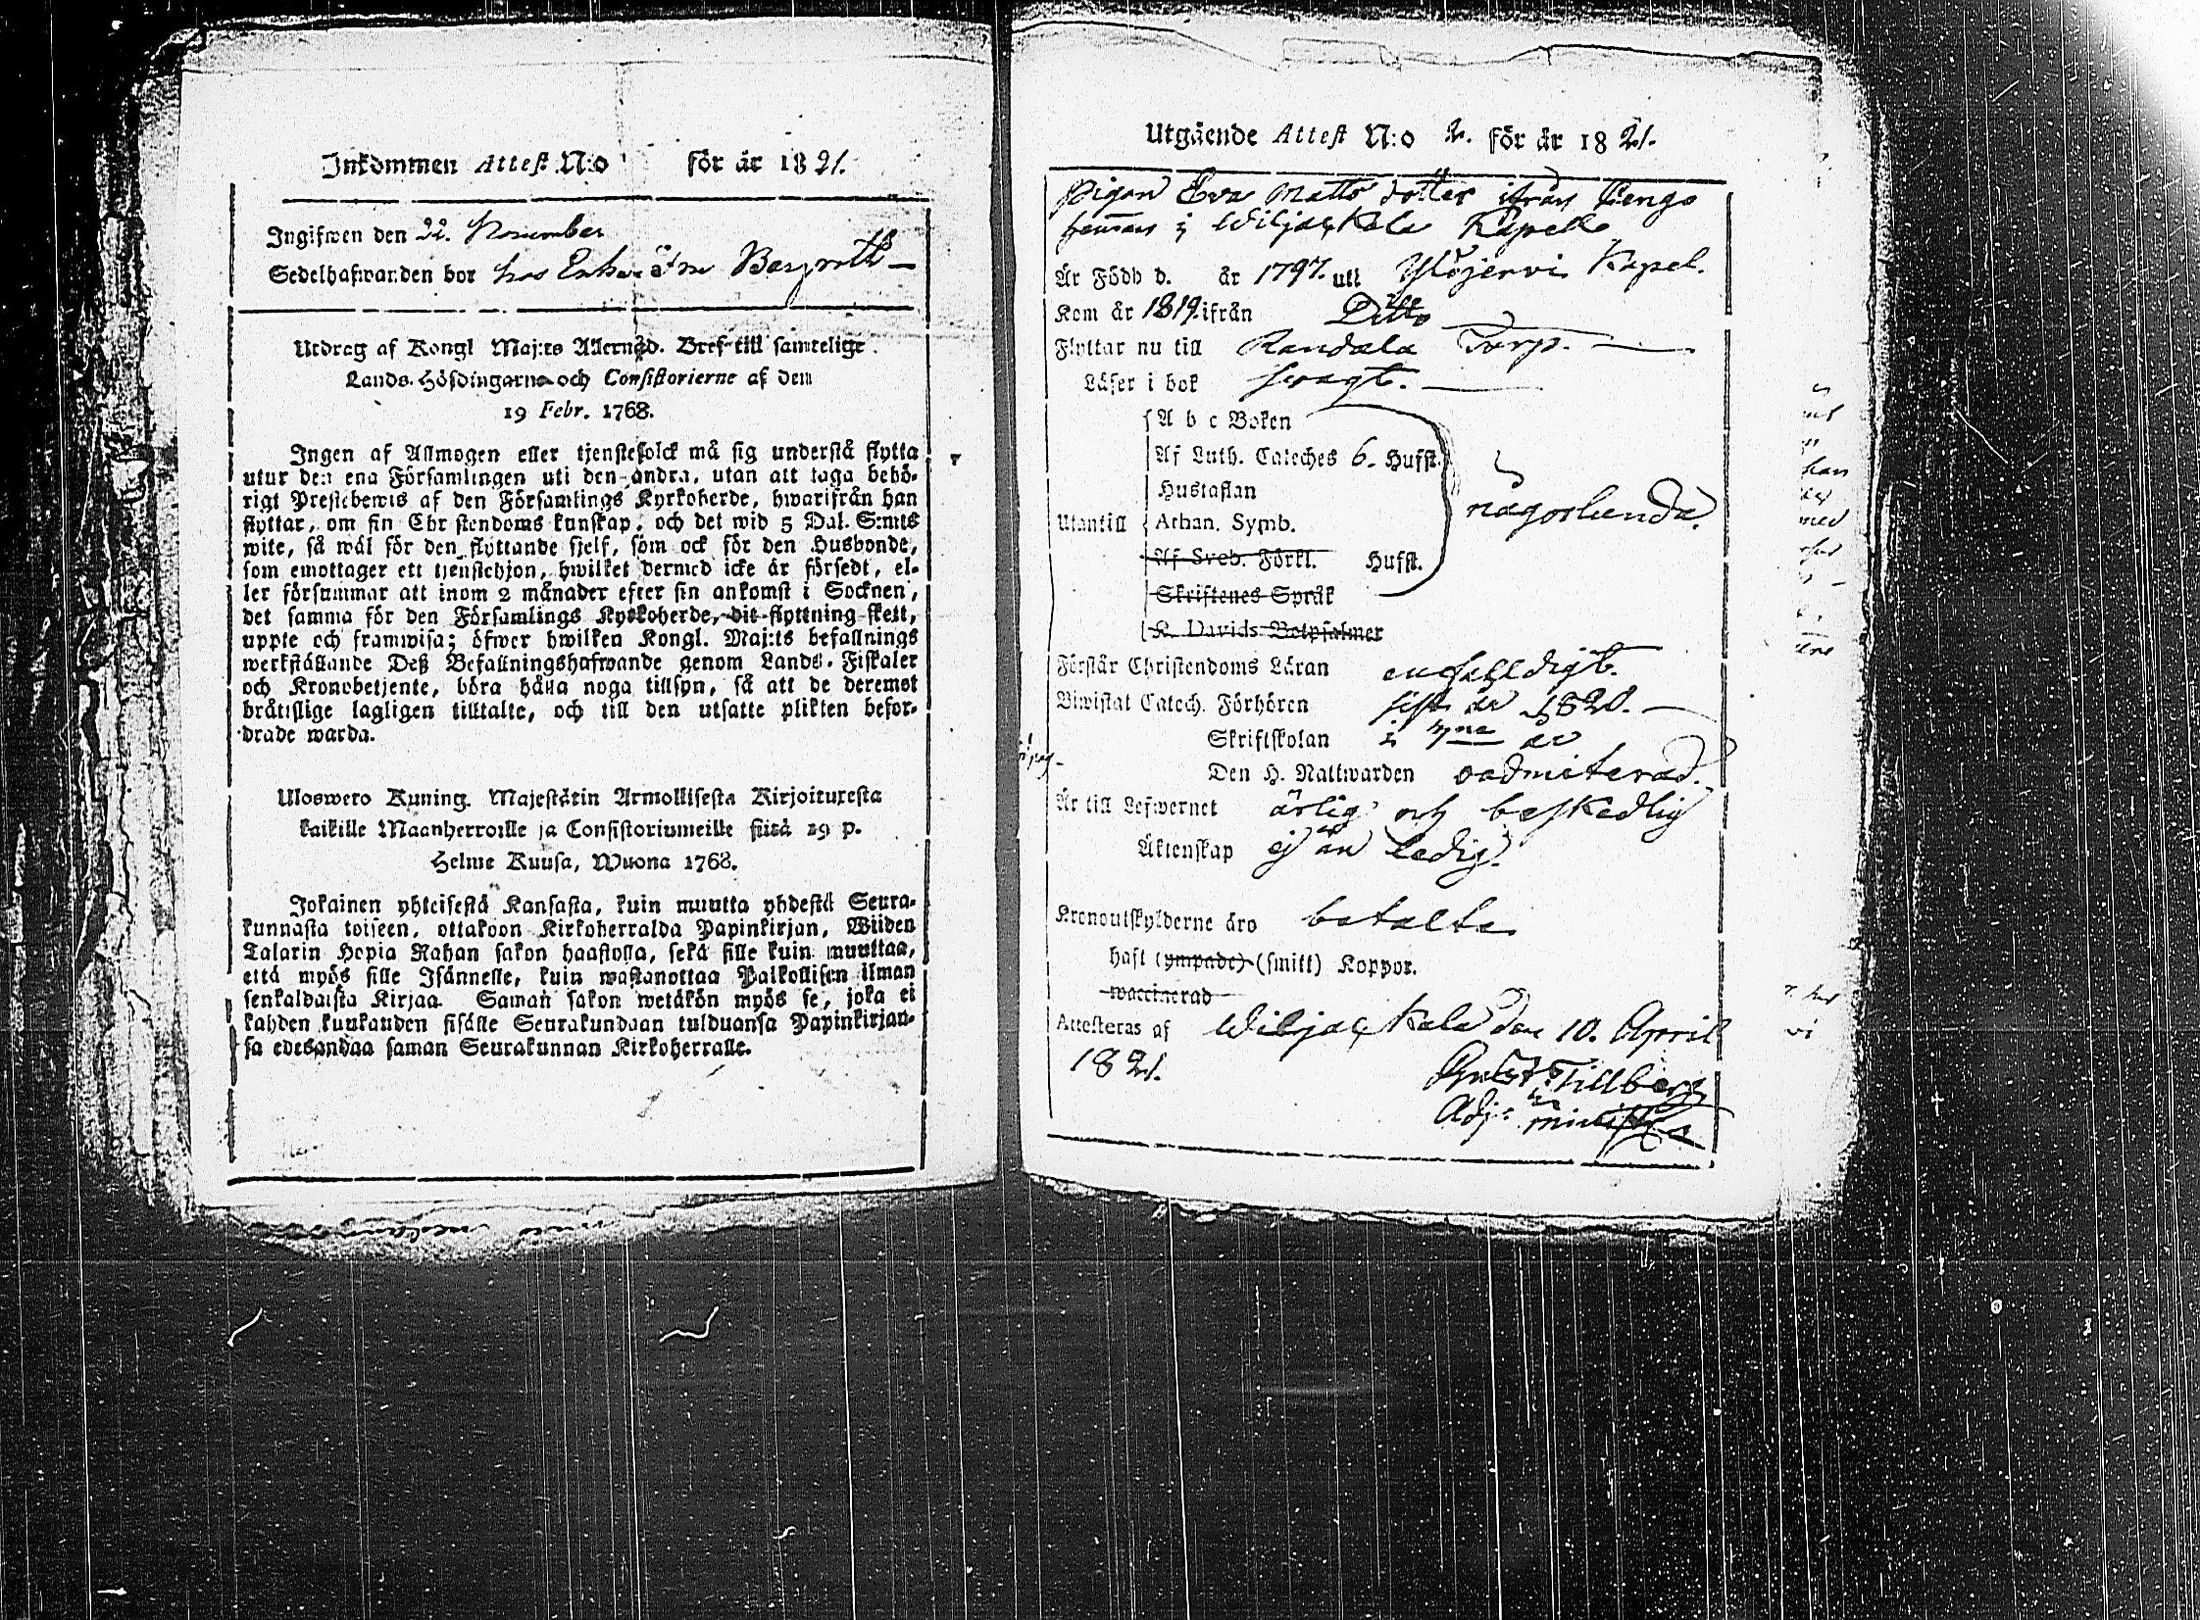 Inkommen Attest N:o för år 1821.
Ingifwen den 22. November
Sedelhafwanden bor hos
Utdrag af Kongl Maj:ts Allernåd. Bref till samtelige
Lands-Höfdingarne och Consistorierne af dem
19 Febr. 1768.
Ingen af Allmogen eller tjenstefolck må sig understå flytta
utur den ena Församlingen uti den andra, utan att taga behö-
rigt Prestebewis af den Församlings Kyrkoherde, hwarifrån han
flyttar, om sin Christendoms kunskap, och det wid 5 Dal. S:mts
wite, så wäl för den flyttande sjelf, som ock för den Husbonde,
som emottager ett tjenstehjon, hwilket dermed icke är försedt, el-
ler försummar att inom 2 månader efter sin ankomst i Socknen,
det samma för den Församlings Kyrkoherde, dit flyttning skett,
uppte och framwisa; öfwer hwilken Kongl. Maj:ts befallnings
werkställande Deß Befallningshafwande genom Lands-Fiskaler
och Kronobetjente, böra hålla noga tillsyn, så att de deremot
bråtislige lagligen tilltalte, och till den utsatte plikten befor-
drade warda.
Uloswero Kuning. Majestätin Armollisesta Kirjoituxesta
kaikille Maanherroille ja Consistoriumeille siitä 19 p.
Helme Kuusa, Wuona 1768.
Jokainen yhteisestä Kansasta, kuin muutta yhdestä Seura-
kunnasta toiseen, ottakoon Kirkoherralda Papinkirjan, Wiiden
Talarin Hopia Rahan sakon haastolla, sekä sille kuin muuttaa,
että myös sille Isännelle, kuin wastanottaa Palkollisen ilman
senkaldaista Kirjaa. Saman sakon wetäkön myös se, joka ei
kahden kuukauden sisälle Seurakundaan tulduansa Papinkirjan-
sa edesandaa saman Seurakunnan Kirkoherralle.
Utgående Attest N:o 2. för år 1821.
Pigan Eva Matts dotter ifrån Pengo
i Wiljackala Kapell
Är Född d. år 1797. uti Ylöjervi Kapel.
Kom år 1819. ifrån Ditto
Flyttar nu till Randala Torp.
Läser i bok swagt.
A b c Boken
Af Luth. Cateches 6. Hufst.
Hustaflan
Utantill Athan. Symb. någorlunda.
Af Sveb. Förkl. Hufst.
Skriftenes Språk
K. Davids Botpsalmer
Förstår Christendoms Läran enfalldigt.
Biwistat Catech. Förhören sist år 1820.
Skriftskolan i år
Den H. Nattwarden oadmiterad.
Är till Lefwernet ärlig och beskedlig
Äktenskap ej än ledig.
Kronoutskylderne äro betalte
haft (ympade) (smitt) Koppor.
waccinerad
Attesteras af Wiljackala den 10. April
1821.
Gust. Tillberg
Adj: